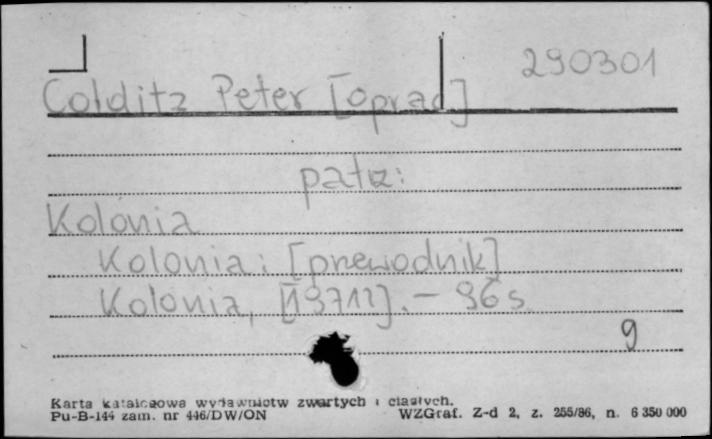 290301
Colditz Peter [oprac]
patrz:
Kolonia
Kolonia: [przewodnik]
Kolonia, . – 96 s.
9
Karta katalogowa wydawnictw zwartych i ciągłych.
Pu-B-144 zam. nr 446/DW/ON WZGraf. Z-d 2, z. 255/86, n. 6 350 000